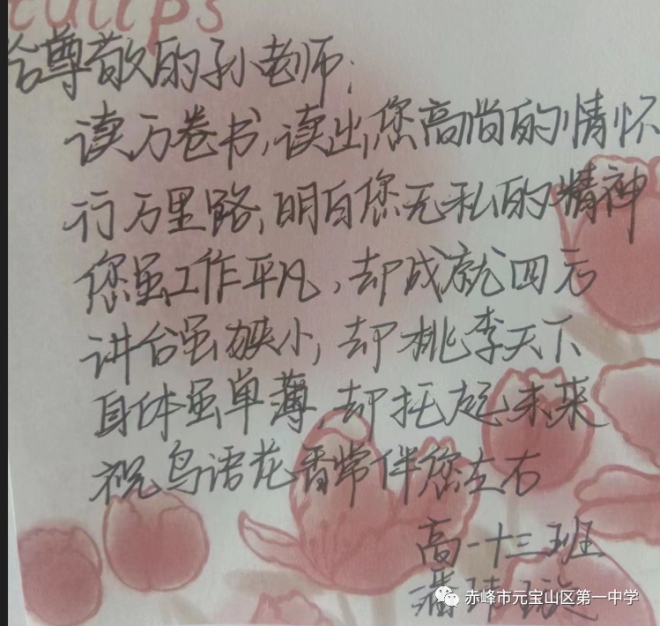 tulips
给尊敬的孙老师：
读万卷书,读出您高尚的情怀
行万里路,明白您无私的精神
您虽工作平凡,却成就四方
讲台虽狭小,却桃李天下
身体虽单薄,却托起未来
祝鸟语花香常伴您左右
高一十三班
潘
赤峰市元宝山区第一中学